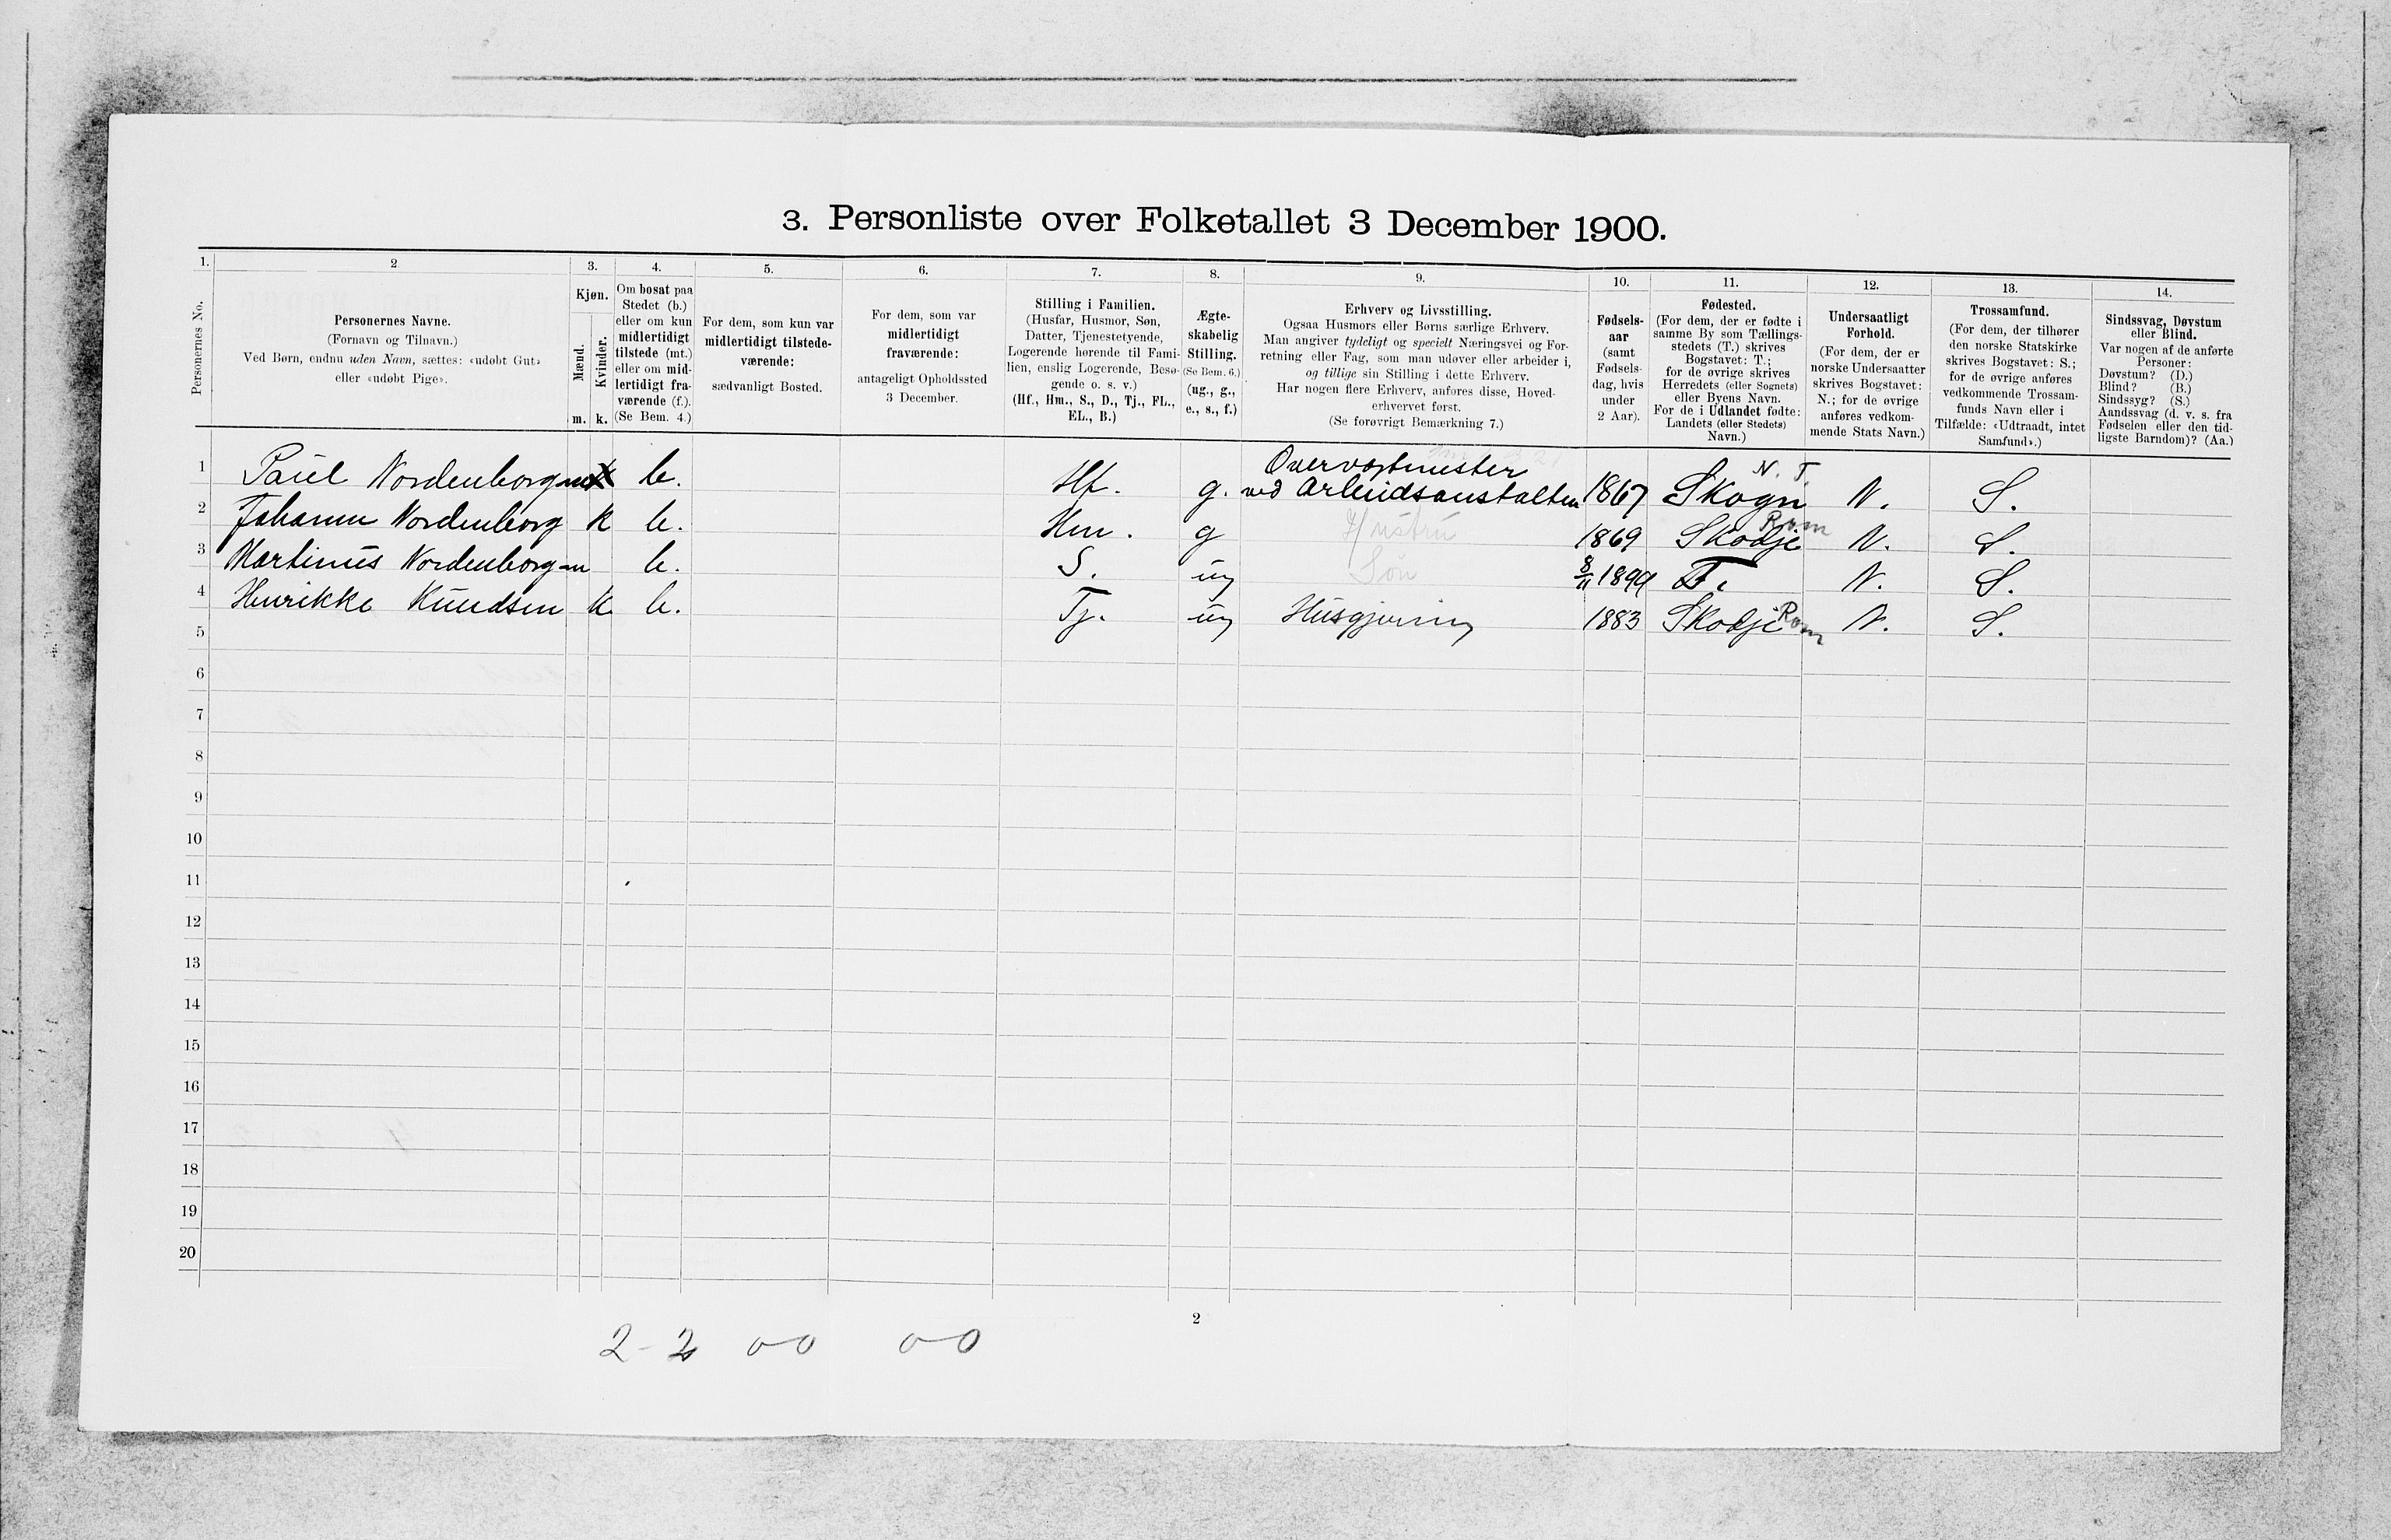 3. Personliste over Folketallet 3 December 1900.
1. 2 3. 4. 5. 6. 7. 8. 9. 10. 11. 12. 13. 14.
Personernes No.
Personernes Navne.
(Fornavn og Tilnavn.)
Ved Børn, endnu uden Navn, sættes: «udøbt Gut»
eller «udøbt Pige».
Kjøn.
Mænd.
Kvinder.
m. k.
Om bosat paa
Stedet (b.)
eller om kun
midlertidigt
tilstede (mt.)
eller om mid-
lertidigt fra-
værende (f.).
(Se Bem. 4.)
For dem, som kun var
midlertidigt tilstede-
værende:
sædvanligt Bosted.
For dem, som var
midlertidigt
fraværende:
antageligt Opholdssted
3 December.
Stilling i Familien.
(Husfar, Husmor, Søn,
Datter, Tjenestetyende,
Logerende hørende til Fami-
lien, enslig Logerende, Besø-
gende o. s. v.)
(Hf., Hm., S., D., Tj., FL.,
EL., B.)
Ægte-
skabelig
Stilling.
(Se Bem. 6.)
(ug., g.,
e., s., f.)
Erhverv og Livsstilling.
Ogsaa Husmors eller Børns særlige Erhverv.
Man angiver tydeligt og specielt Næringsvei og For-
retning eller Fag, som man udøver eller arbeider i,
og tillige sin Stilling i dette Erhverv.
Har nogen flere Erhverv, anføres disse, Hoved-
erhvervet først.
(Se forøvrigt Bemærkning 7.)
Fødsels-
aar
(samt
Fødsels-
dag, hvis
under
2 Aar).
Fødested.
(For dem, der er fødte i
samme By som Tællings-
stedets (T.) skrives
Bogstavet: T.;
for de øvrige skrives
Herredets (eller Sognets)
eller Byens Navn.
For de i Udlandet fødte:
Landets (eller Stedets)
Navn.)
Undersaatligt
Forhold.
(For dem, der er
norske Undersaatter
skrives Bogstavet:
N.; for de øvrige
anføres vedkom-
mende Stats Navn.)
Trossamfund.
(For dem, der tilhører
den norske Statskirke
skrives Bogstavet: S.;
for de øvrige anføres
vedkommende Trossam-
funds Navn eller i
Tilfælde: «Udtraadt, intet
Samfund».)
Sindssvag, Døvstum
eller Blind.
Var nogen af de anførte
Personer:
Døvstum? (D.)
Blind? (B.)
Sindssyg? (S.)
Aandssvag (d. v. s. fra
Fødselen eller den tid-
ligste Barndom)? (Aa.)
1 Paul Nordenborg m b. Hf. g. Overvagtmester ved Arbeidsanstalten 1867 Skogn N. T. N. S.
2 Johanne Nordenborg k b. Hm. g Hustru 1869 Skodje Rom N. S.
3 Martinus Nordenborg m b. S. ug Søn 8/11 1899 T. N. S.
4 Henrikke Knudsen k b. Tj. ug Husgjerning 1883 Skodje Rom N. S.
5
6
7
8
9
10
11
12
13
14
15
16
17
18
19
20
2
2-2 0-0 0-0